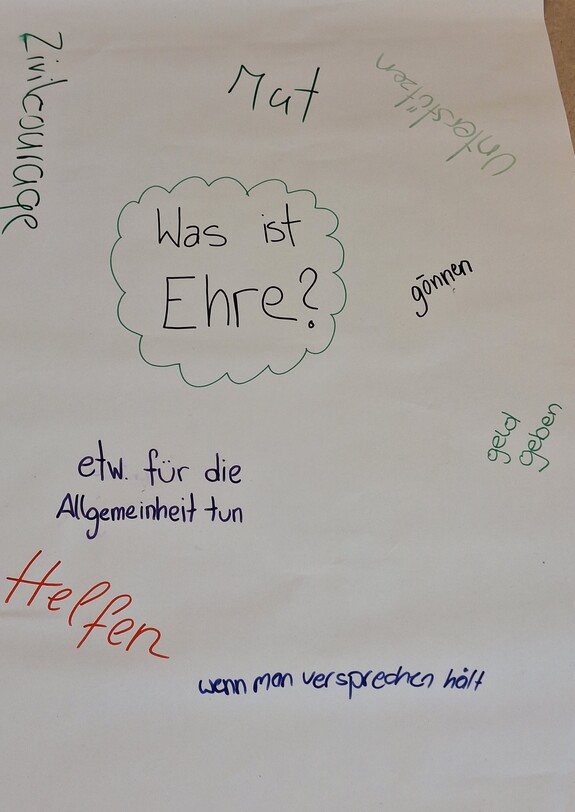 Zivilcourage
Mut
Unterstützen
Was ist
Ehre?
gönnen
geld
geben
etw. für die
Allgemeinheit tun
Helfen
wenn man versprechen hält